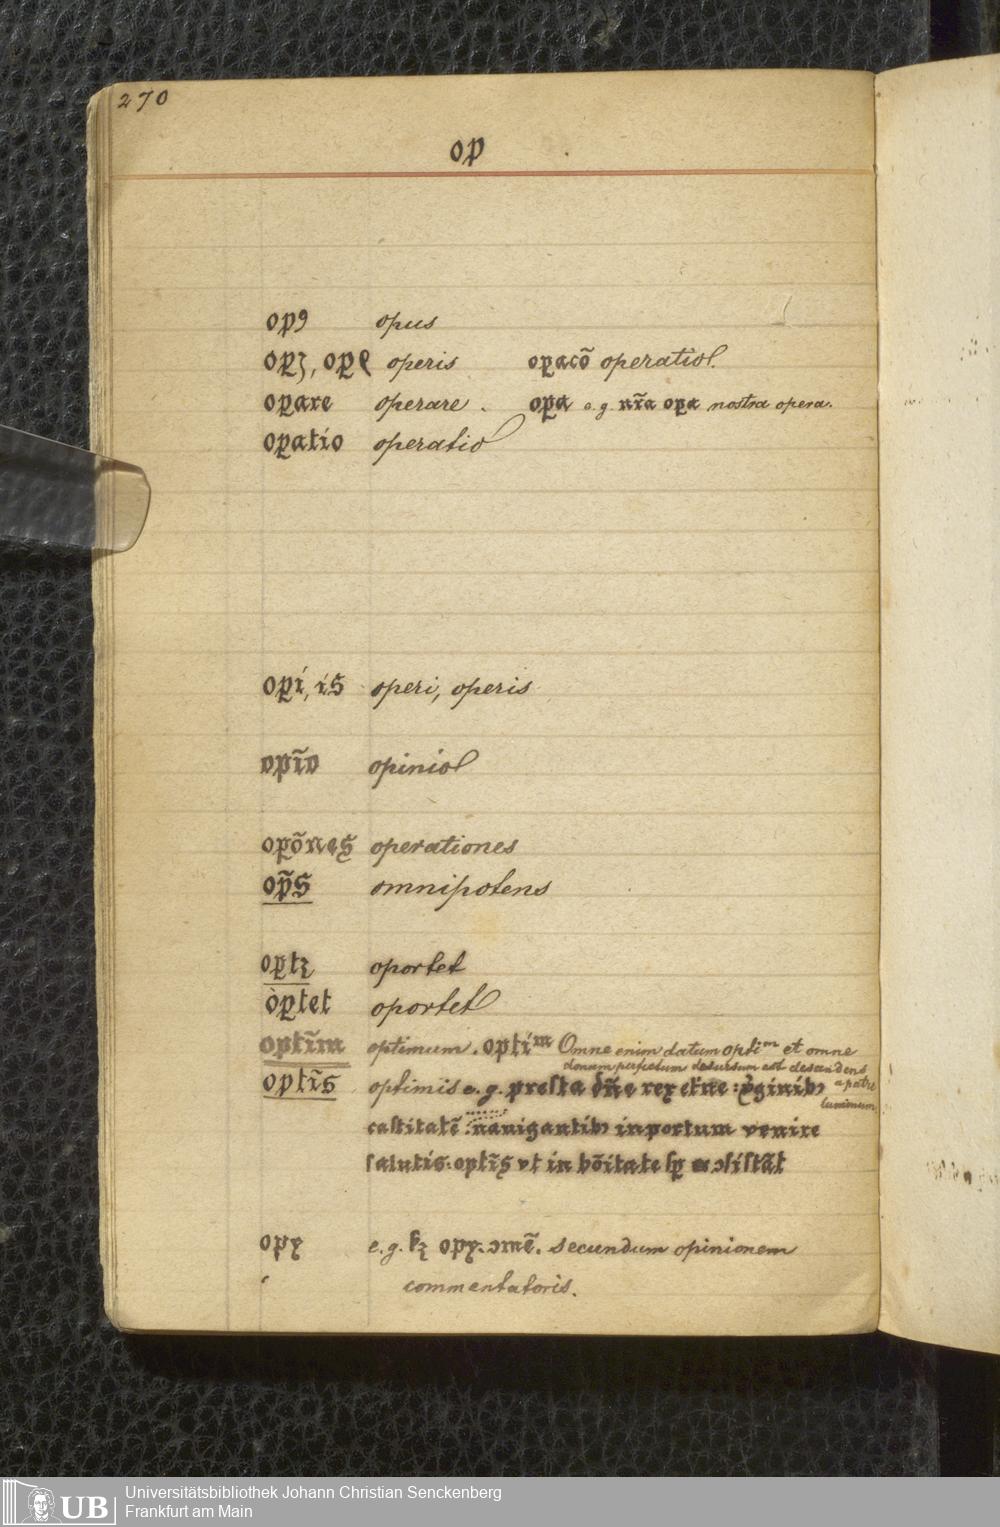 270
op
opꝯ opus
oꝑꝫ, oꝑꝭ operis oꝑacō operatio.
oꝑare operare. oꝑa e.g. nr̄a oꝑa nostra opera.
oꝑatio operatio
oꝑi, is operi, operis
opīo opinio
opōnes operationes
op̄s omnipotens
oꝑtꝫ oportet
oꝑtet oportet
optīm optimum. optiᵐ Omne enim datum optiᵐ et omne
donum perfectum desursum est descendens
a patre
luminum
optīs optimis e.g. presta dn̄e rex etne: v̄ginibꝫ
castitatē: navigantibꝫ in portum venire
salutis. optīs ut in bōitate sꝑ ꝯsistāt
e.g. opꝫ. ꝯmē. secundum opinionem
commentatoris.
UB
Universitätsbibliothek Johann Christian Senckenberg
Frankfurt am Main